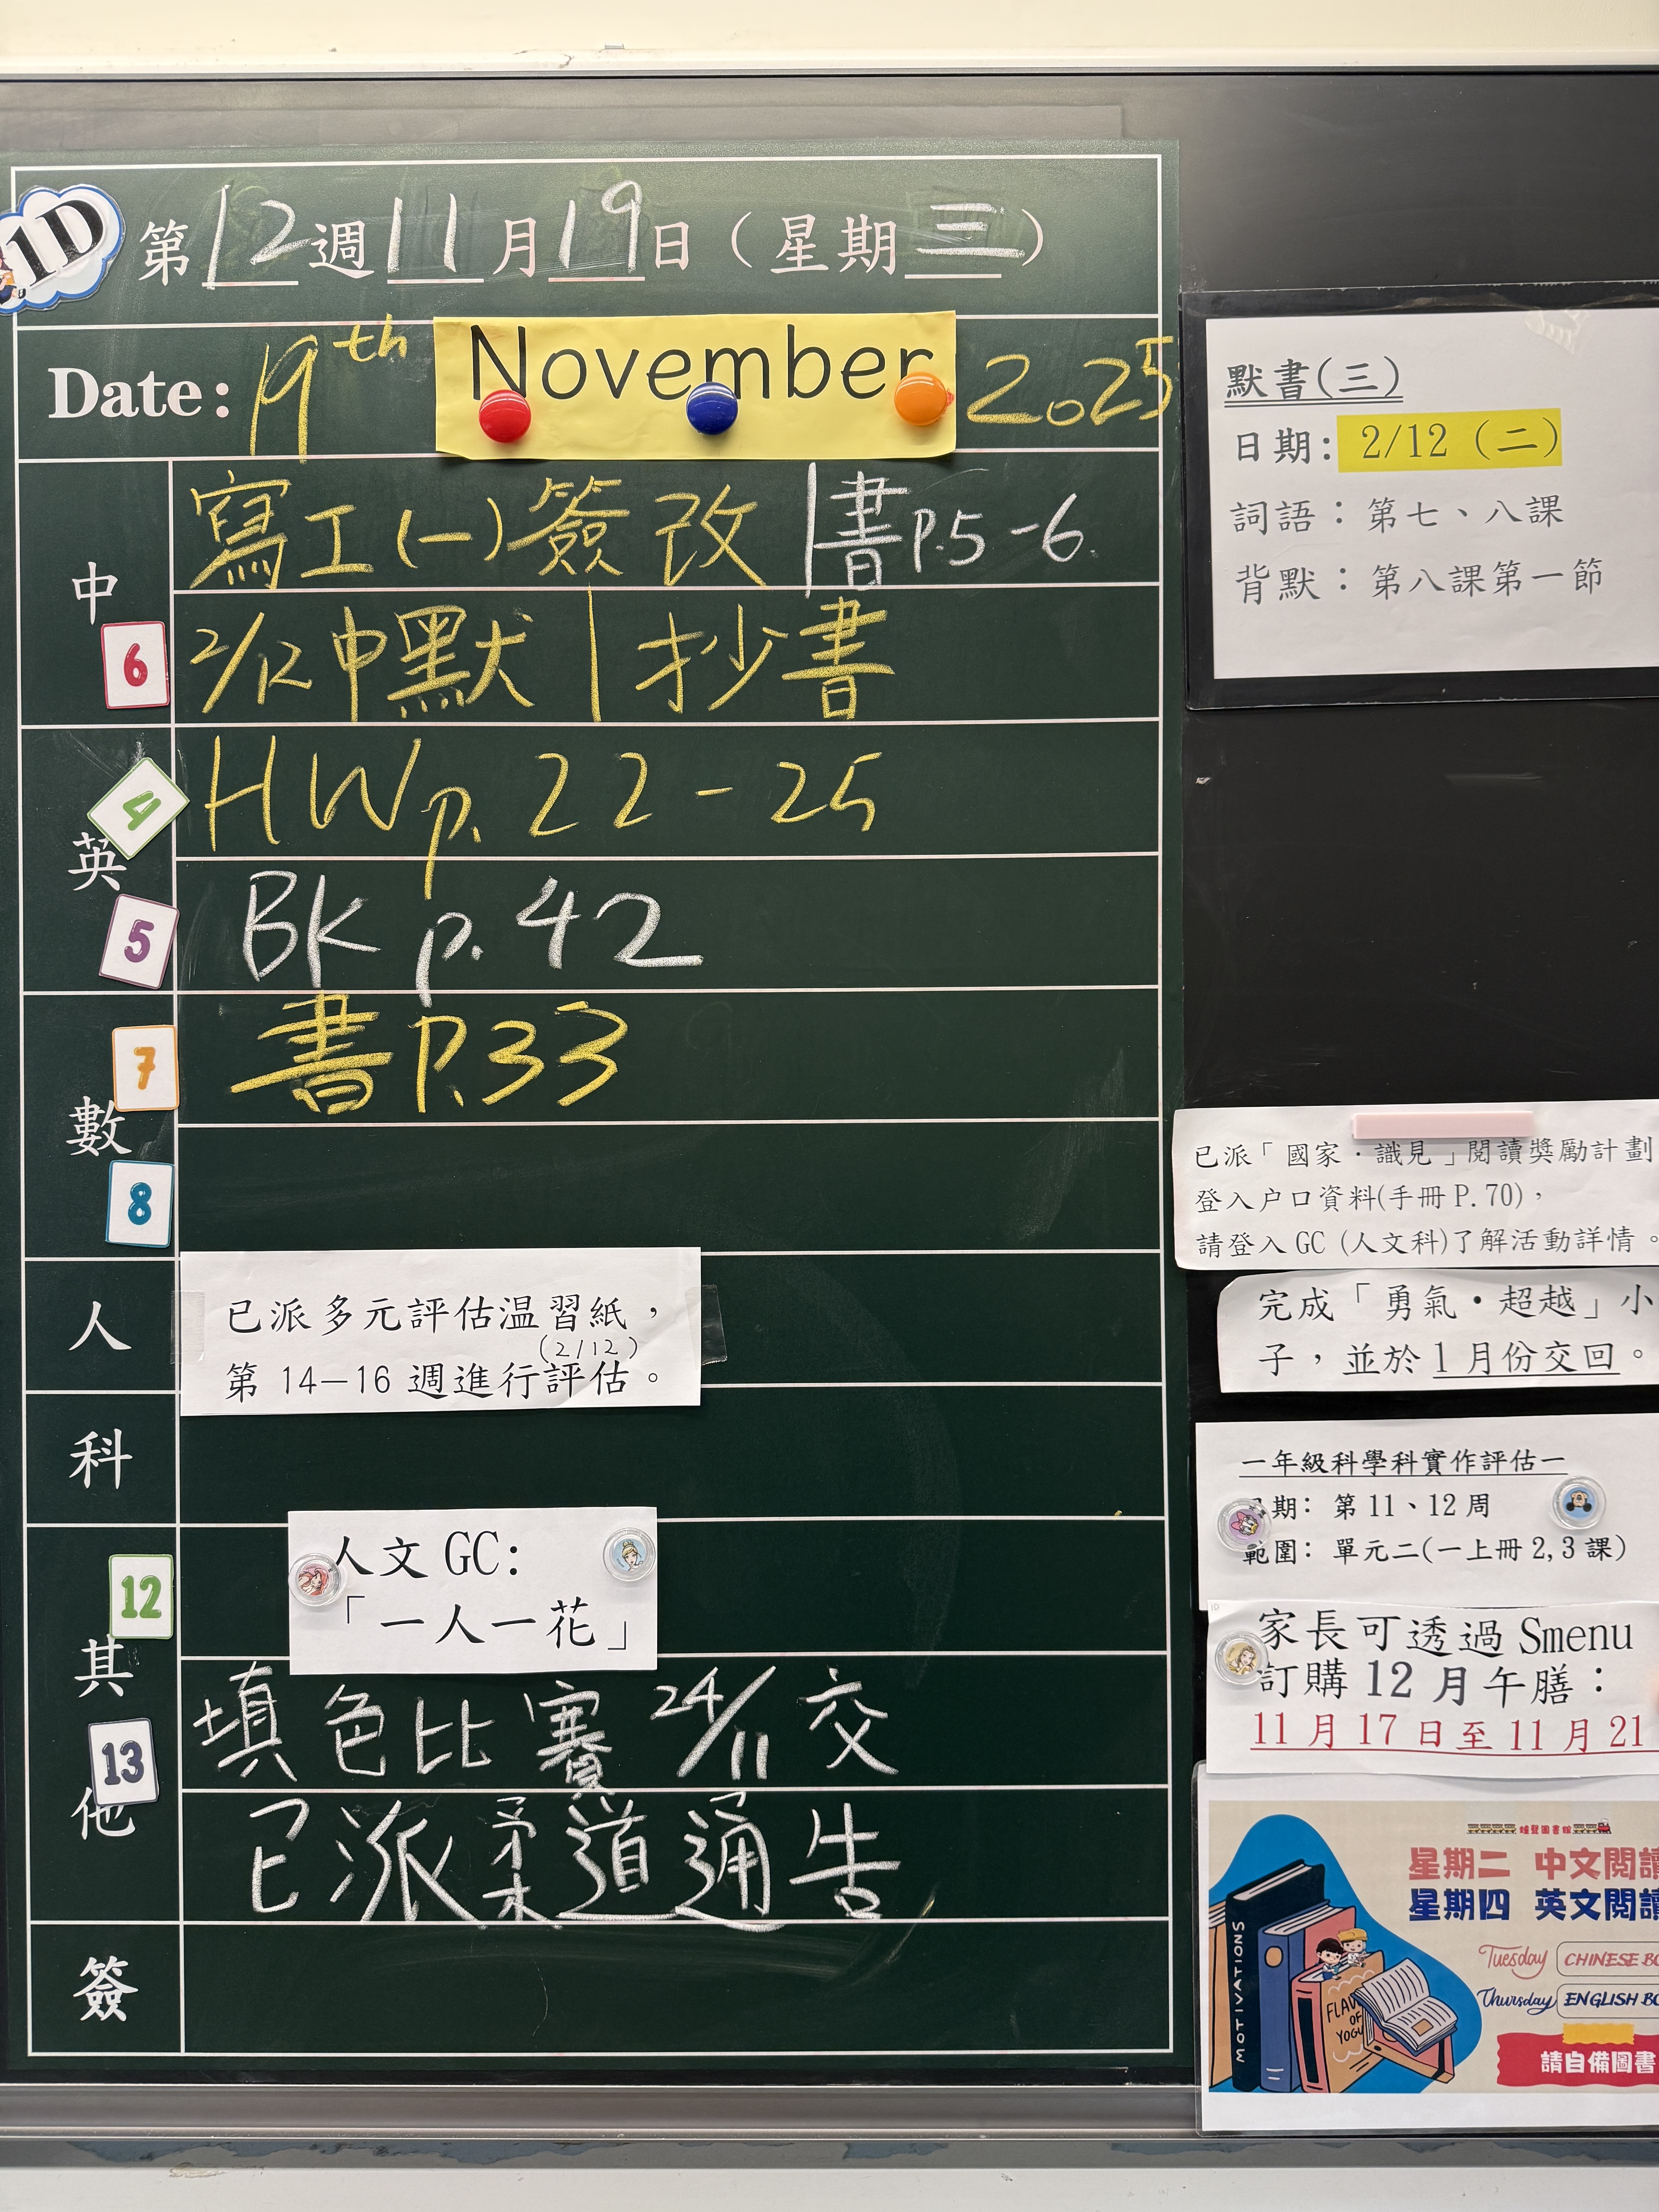 1D
第12週11月19日（星期三）
Date: 19th November 2025
中
寫工(一)簽改 | 書P.5-6.
6
2/12中默 | 抄書
英
4
HW p. 22-25
5
BK p. 42
數
7
書P.33
8
人
已派多元評估温習紙，
(2/12)
第 14—16 週進行評估。
科
其他
12
人文 GC:
「一人一花」
13
填色比賽 24/11 交
已派柔道通告
簽
默書(三)
日期: 2/12（二）
詞語：第七、八課
背默：第八課第一節
已派「國家．識見」閱讀獎勵計劃
登入户口資料(手冊 P.70)，
請登入 GC (人文科)了解活動詳情。
完成「勇氣•超越」小
子，並於 1 月份交回。
一年級科學科實作評估一
期: 第 11、12 周
範圍: 單元二(一上冊 2,3 課)
家長可透過 Smenu
訂購 12 月午膳：
11 月 17 日至 11 月 21
圖書館
星期二 中文閱讀
星期四 英文閱讀
Tuesday CHINESE BO
Thursday ENGLISH BO
請自備圖書
MOTIVATIONS
FLAV
OF
YOGU